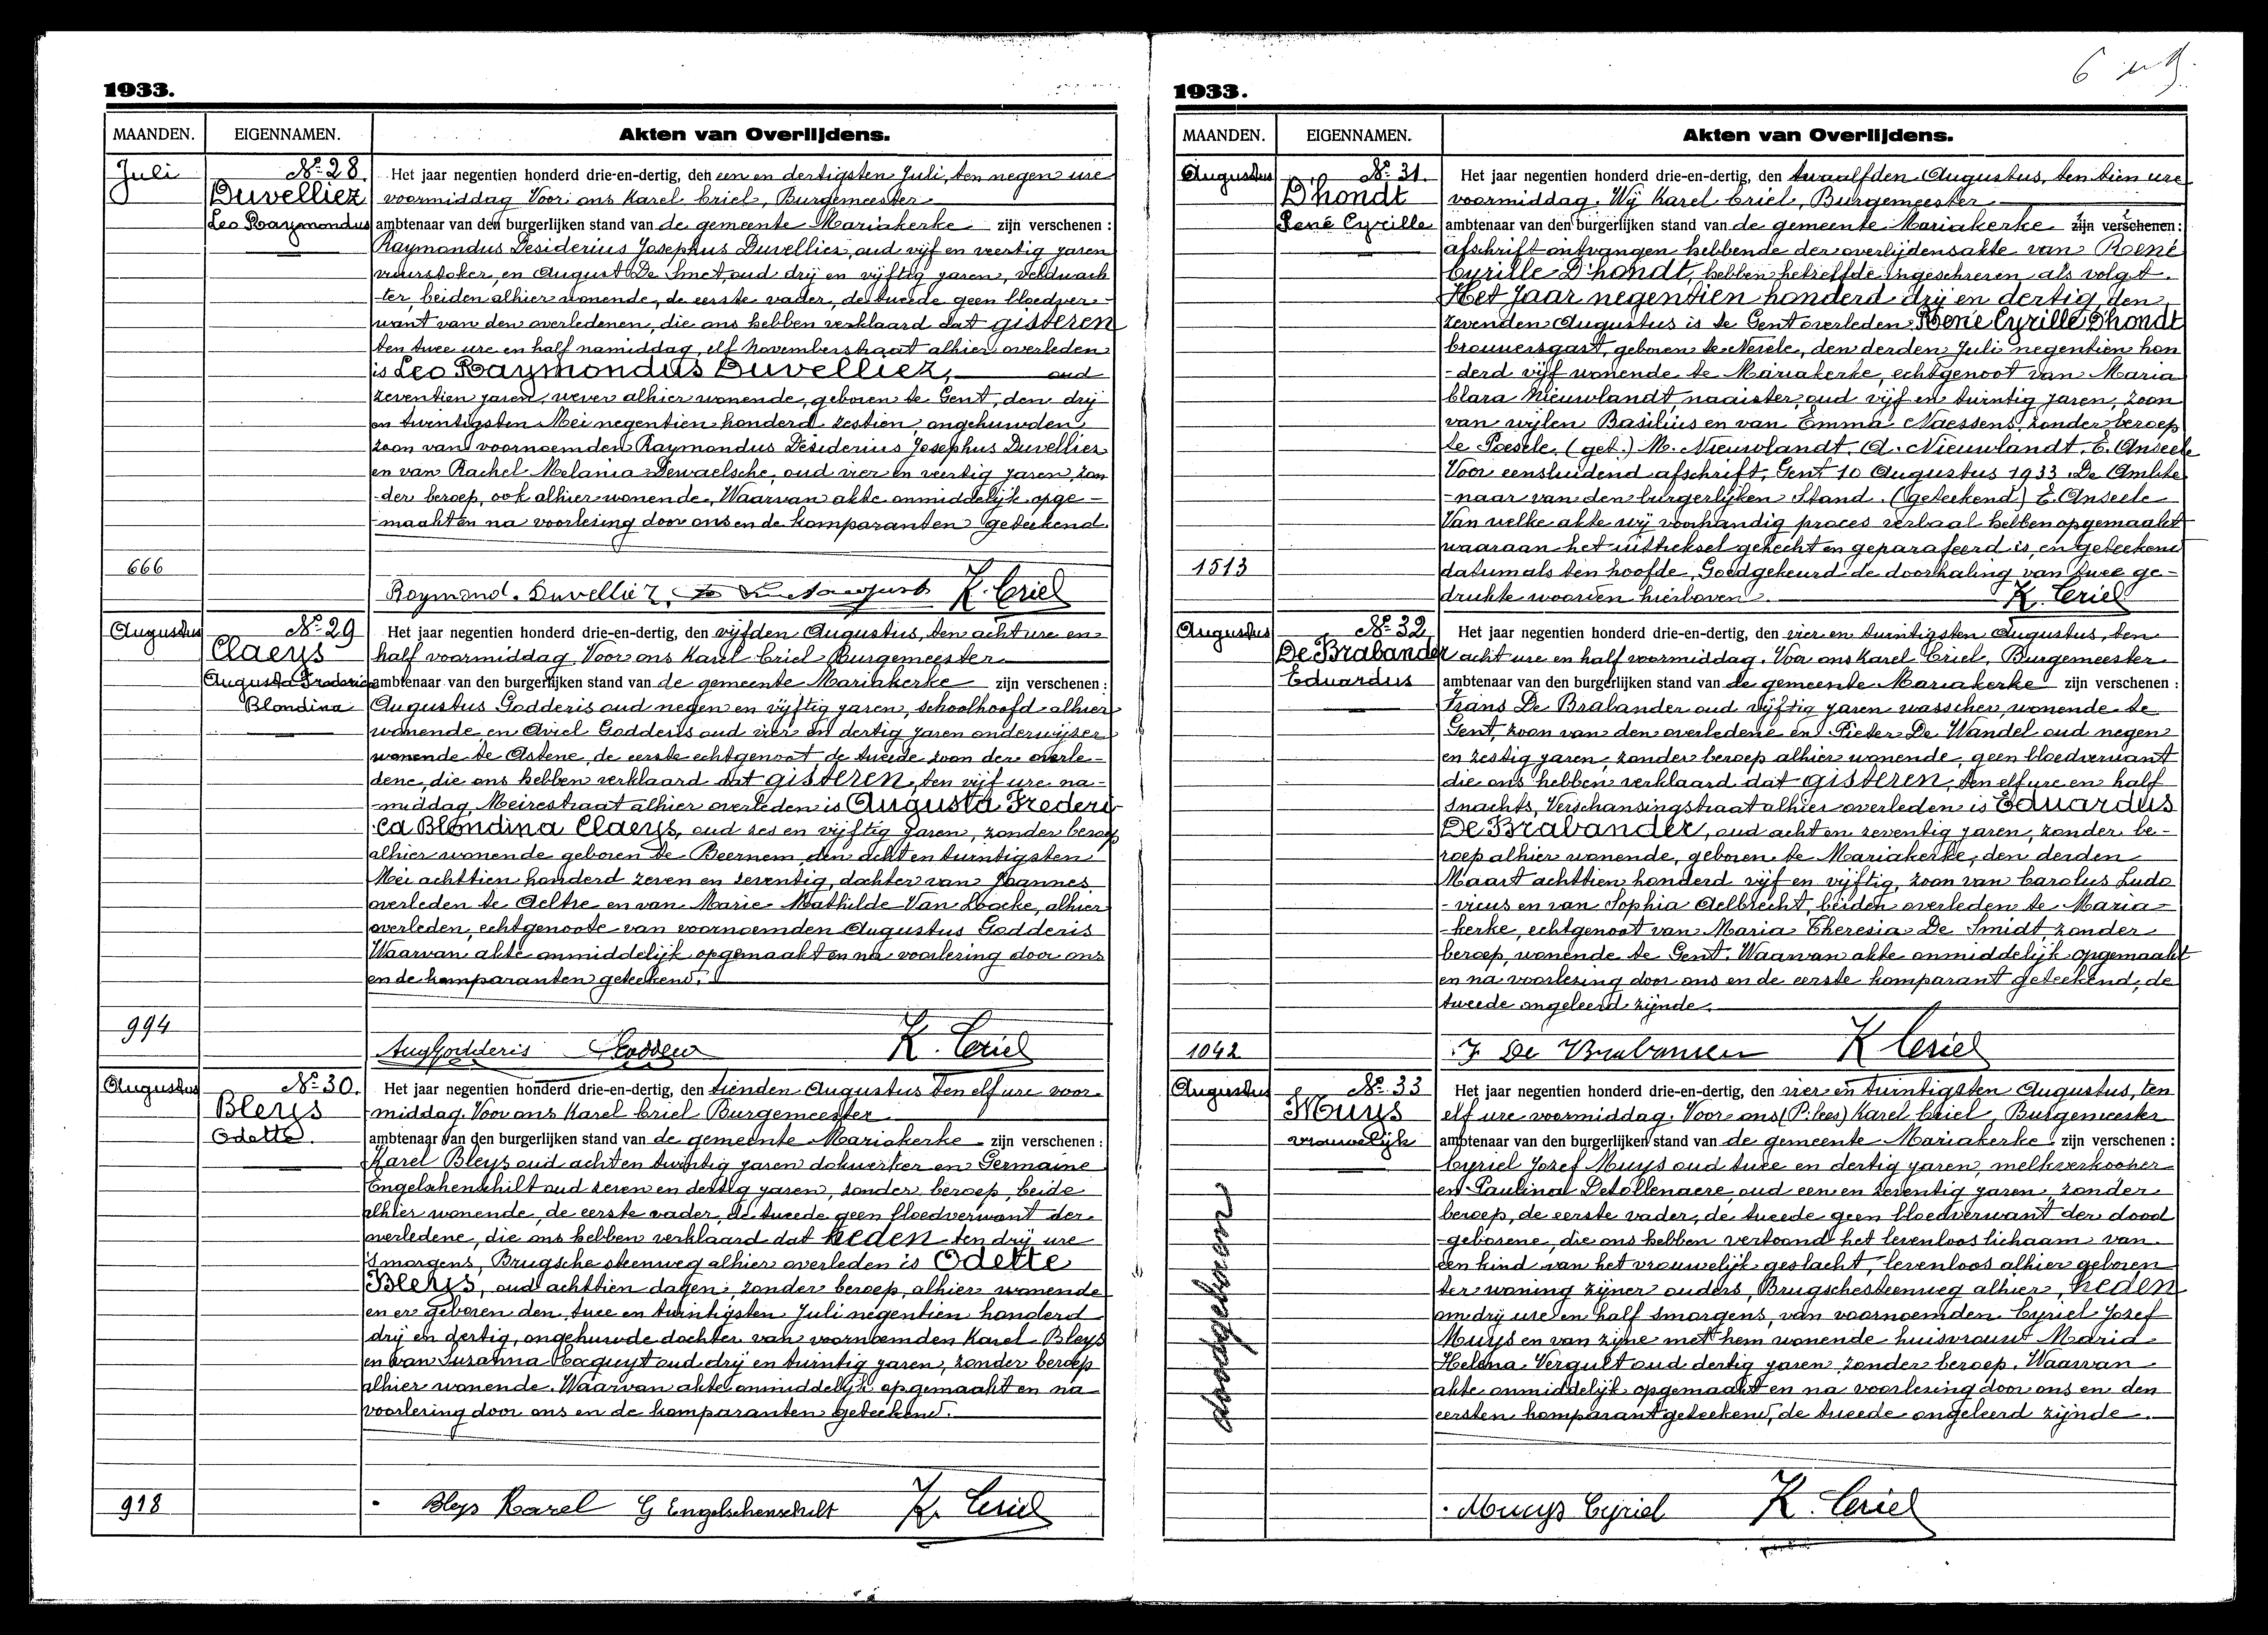 1933.
MAANDEN. EIGENNAMEN. Akten van Overlijdens.
Juli Nº 28. Het jaar negentien honderd drie-en-dertig, den een en dertigsten Juli, ten negen ure
Duvelliez voormiddag Voor ons Karel Criel, Burgemeester
Leo Raymondus ambtenaar van den burgerlijken stand van de gemeente Mariakerke zijn verschenen :
Raymondus Desiderius Josephus Duvelliez, oud vijf en veertig jaren
vuurstoker, en August De Smet, oud drij en vijftig jaren, veldwach
-ter, beiden alhier wonende, de eerste vader, de tweede geen bloedver-
want van den overledenen, die ons hebben verklaard dat gisteren
ten twee ure en half namiddag, elf Novemberstraat alhier overleden
is Leo Raymondus Duvelliez, oud
zeventien jaren, wever alhier wonende, geboren te Gent, den drij
en twintigsten Mei negentien honderd zestien, ongehuwden
zoon van voornoemden Raymondus Desiderius Josephus Duvelliez
en van Rachel Melania Dewaelsche, oud vier en veertig jaren, zon
-der beroep, ook alhier wonende. Waarvan akte onmiddelijk opge-
-maakt en na voorlezing door ons en de komparanten geteekend.
666
Raymond. Duvelliez K. Criel
Augustus Nº 29 Het jaar negentien honderd drie-en-dertig, den vijfden Augustus, ten acht ure en
Claeys half voormiddag Voor ons Karel Criel Burgemeester
Augusta Frederica ambtenaar van den burgerlijken stand van de gemeente Mariakerke zijn verschenen :
Blondina Augustus Godderis oud negen en vijftig jaren, schoolhoofd alhier
wonende, en Ariel Godderis oud vier en dertig jaren onderwijzer
wonende te Astene, de eerste echtgenoot de tweede zoon der overle-
dene, die ons hebben verklaard dat gisteren, ten vijf ure na-
-middag, Meirestraat alhier overleden is Augusta Frederi-
-ca Blondina Claeys, oud zes en vijftig jaren, zonder beroep
alhier wonende geboren te Beernem, den acht en twintigsten
Mei achttien honderd zeven en seventig, dochter van Joannes
overleden te Aeltre en van Marie Mathilde Van Loocke, alhier
overleden, echtgenoote van voornoemden Augustus Godderis
Waarvan akte onmiddelijk opgemaakt en na voorlezing door ons
en de komparanten geteekend.
994
Aug Godderis K. Criel
Augustus Nº 30. Het jaar negentien honderd drie-en-dertig, den tienden Augustus ten elf ure voor-
Bleys middag Voor ons Karel Criel Burgemeester
Odette ambtenaar van den burgerlijken stand van de gemeente Mariakerke zijn verschenen :
Karel Bleys oud acht en twintig jaren dokwerker en Germaine
Engelschenschilt oud zeven en dertig jaren, zonder beroep, beide
alhier wonende, de eerste vader, de tweede geen bloedverwant der
overledene, die ons hebben verklaard dat heden ten drij ure
'smorgens, Brugsche steenweg alhier overleden is Odette
Bleys, oud achttien dagen, zonder beroep, alhier wonende
en er geboren den twee en twintigsten Juli negentien honderd
drij en dertig, ongehuwde dochter van voornoemden Karel Bleys
en van Suzanna Haquyt oud drij en twintig jaren, zonder beroep
alhier wonende. Waarvan akte onmiddelijk opgemaakt en na
voorlezing door ons en de komparanten geteekend.
918
Bleys Karel G Engelschenschilt K. Criel
1933.
MAANDEN. EIGENNAMEN. Akten van Overlijdens.
Augustus Nº 31. Het jaar negentien honderd drie-en-dertig, den twaalfden Augustus, ten tien ure
D'hondt voormiddag. Wij Karel Criel, Burgemeester
René Cyrille ambtenaar van den burgerlijken stand van de gemeente Mariakerke zijn verschenen :
afschrift ontvangen hebbende der overlijdensakte van René
Cyrille D'hondt, hebben hetzelfde ingeschreven als volgt.
Het Jaar negentien honderd drij en dertig, den
zevenden Augustus is te Gent overleden René Cyrille Dhondt
brouwersgast, geboren te Nevele, den derden Juli negentien hon
-derd vijf wonende te Mariakerke, echtgenoot van Maria
Clara Nieuwlandt naaister, oud vijf en twintig jaren, zoon
van wijlen Basilius en van Emma Naessens, zonder beroep
te Poesele. (get.) M. Nieuwlandt. A. Nieuwlandt. E. Anseele
Voor eensluidend afschrift, Gent 10 Augustus 1933. De Ambte
-naar van den burgerlijken Stand. (geteekend) E. Anseele
Van welke akte wij voorhandig proces verbaal hebben opgemaakt
waaraan het uittreksel gehecht en geparafeerd is, en geteekend
1513 datum als ten hoofde. Goedgekeurd de doorhaling van twee ge-
drukte woorden hierboven. K. Criel
Augustus Nº 32 Het jaar negentien honderd drie-en-dertig, den vier en twintigsten Augustus, ten
De Brabander acht ure en half voormiddag. Voor ons Karel Criel, Burgemeester
Eduardus ambtenaar van den burgerlijken stand van de gemeente Mariakerke zijn verschenen :
Frans De Brabander oud vijftig jaren wasscher, wonende te
Gent, zoon van den overledene en Pieter De Wandel oud negen
en zestig jaren, zonder beroep alhier wonende, geen bloedverwant
die ons hebben verklaard dat gisteren, ten elf ure en half
snachts, Verschansingstraat alhier overleden is Eduardus
De Brabander, oud acht en zeventig jaren, zonder be-
roep alhier wonende, geboren te Mariakerke, den derden
Maart achttien honderd vijf en vijftig, zoon van Carolus Ludo
-vicus en van Sophia Aelbrecht, beiden overleden te Maria-
-kerke, echtgenoot van Maria Theresia De Smidt zonder
beroep, wonende te Gent. Waarvan akte onmiddelijk opgemaakt
en na voorlezing door ons en de eerste komparant geteekend, de
tweede ongeleerd zijnde.
1042 F De Brabanden K Criel
Augustus Nº 33 Het jaar negentien honderd drie-en-dertig, den vier en twintigsten Augustus, ten
Muys elf ure voormiddag. Voor ons (P. lees) Karel Criel, Burgemeester
vrouwelijk ambtenaar van den burgerlijken stand van de gemeente Mariakerke zijn verschenen :
Cyriel Jozef Muys oud twee en dertig jaren, melkverkooper
en Paulina Detollenaere, oud een en zeventig jaren, zonder
beroep, de eerste vader, de tweede geen bloedverwant der dood
-geborene, die ons hebben vertoond het levenloos lichaam van
een kind van het vrouwelijk geslacht, levenloos alhier geboren
ter woning zijner ouders, Brugschesteenweg alhier, heden
om drij ure en half smorgens, van voornoemden Cyriel Jozef
Muys en van zijne met hem wonende huisvrouw Maria
Helena Vergult oud dertig jaren zonder beroep. Waarvan
akte onmiddelijk opgemaakt en na voorlezing door ons en den
eersten komparant geteekend, de tweede ongeleerd zijnde.
doodgeboren
Muys Cyriel K. Criel